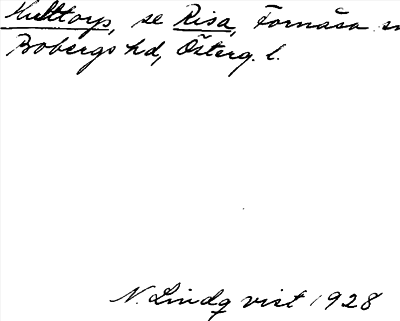 Hulttorp, se Risa, Fornåsa sn
Bobergs hd, Österg. l.
N. Lindqvist 1928